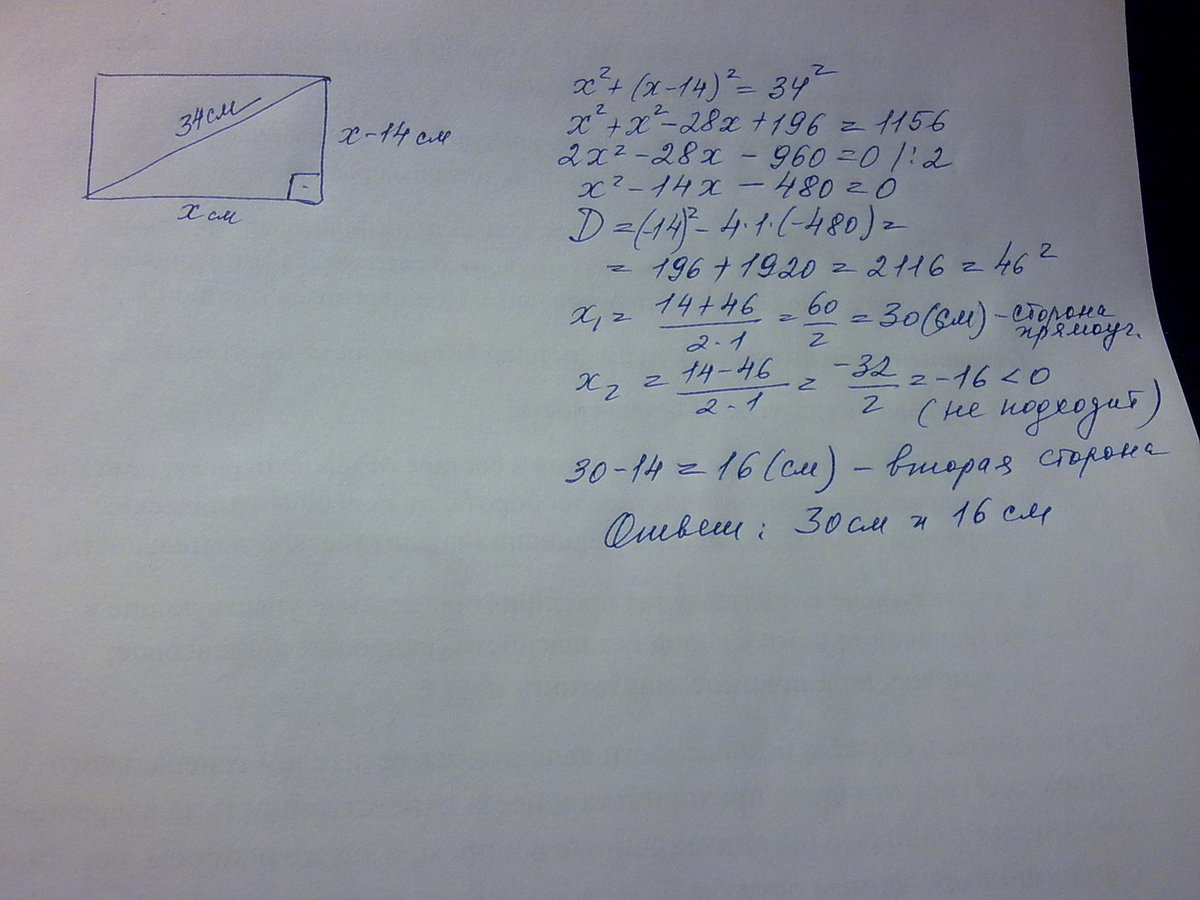 34см
x-14 см
x см
x² + (x-14)² = 34²
x² + x² - 28x + 196 = 1156
2x² - 28x - 960 = 0 /:2
x² - 14x - 480 = 0
D = (-14)² - 4·1·(-480) =
= 196 + 1920 = 2116 = 46²
x₁ = (14+46)/(2·1) = 60/2 = 30(см) - сторона
прямоуг.
x₂ = (14-46)/(2·1) = -32/2 = -16 < 0
(не подходит)
30-14 = 16 (см) - вторая сторона
Ответ: 30см и 16 см